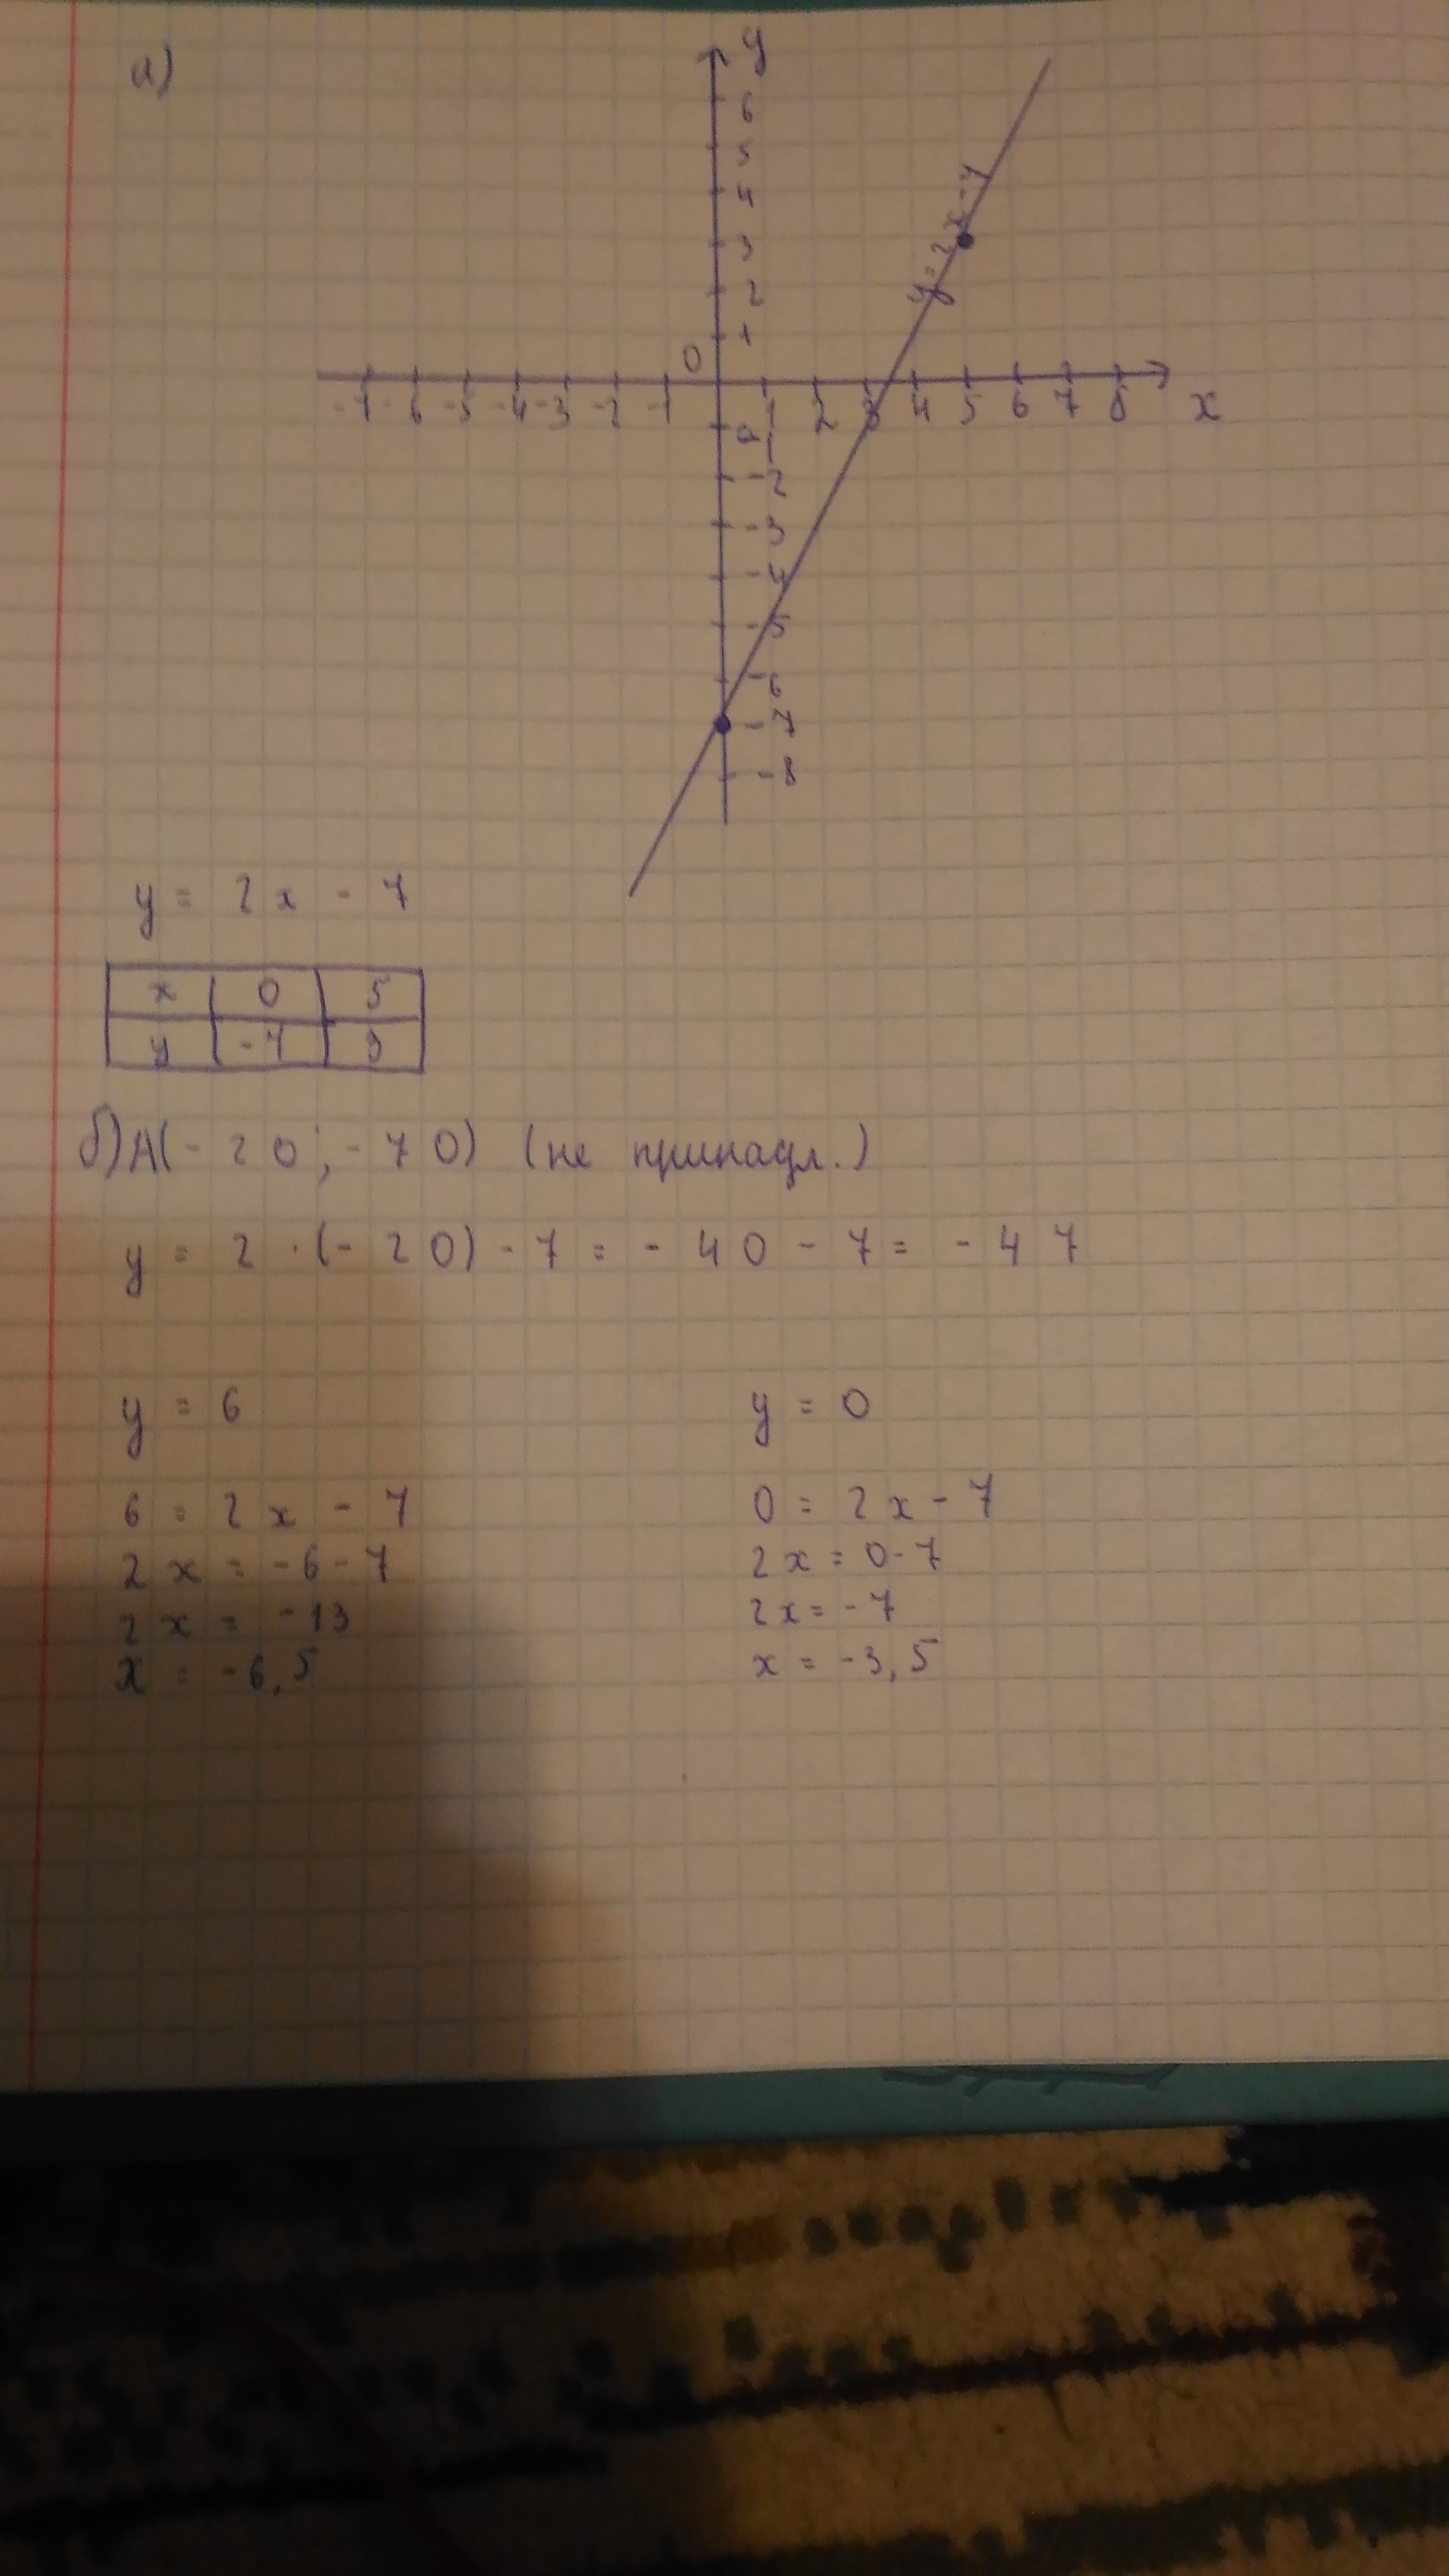 а)
y
6
5
4
3
2
1
y=2x-7
0
-7 -6 -5 -4 -3 -2 -1 1 2 3 4 5 6 7 8 x
-1
-2
-3
-4
-5
-6
-7
-8
y = 2x - 7
x 0 5
y -7 3
б) A(-20; -70) (не принадл.)
y = 2 · (-20) - 7 = -40 - 7 = -47
y = 6 y = 0
6 = 2x - 7 0 = 2x - 7
2x = -6 - 7 2x = 0 - 7
2x = -13 2x = -7
x = -6,5 x = -3,5